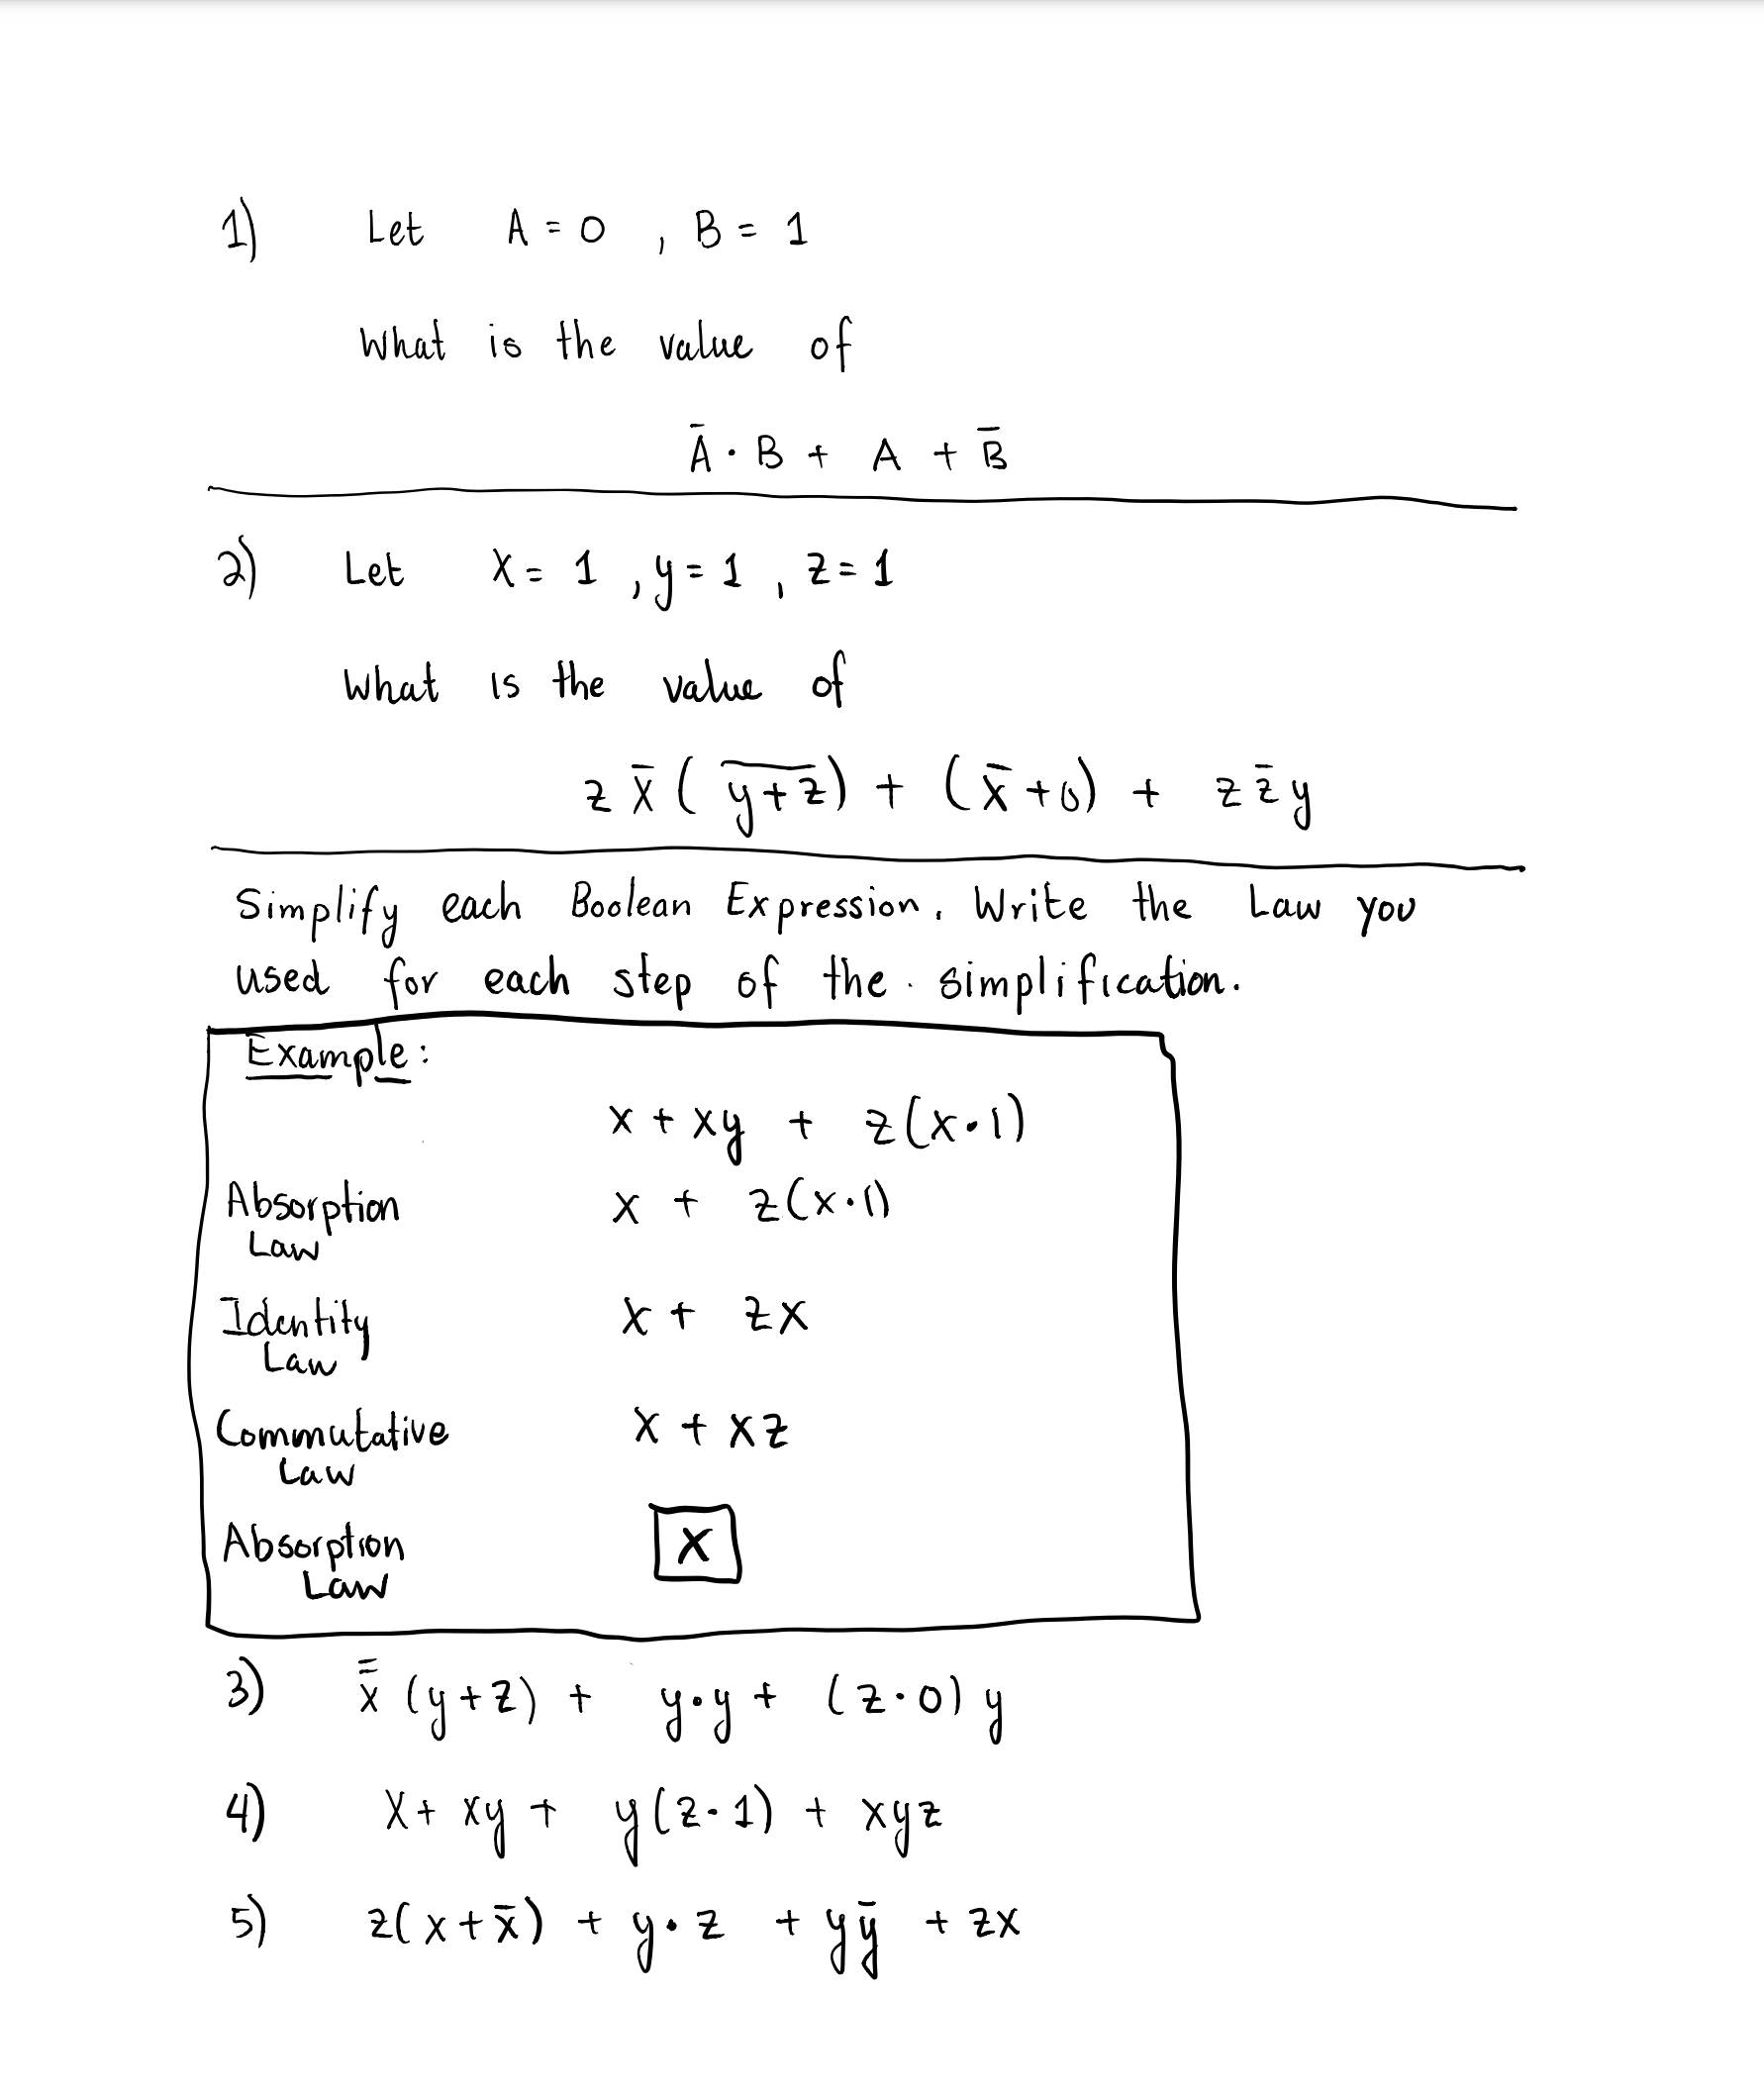 1) Let A = 0 , B = 1
What is the value of
Ā · B + A + B̄
2) Let X = 1 , y = 1 , z = 1
What is the value of
z x̄ ( y̅+̅z̅ ) + (x̄ + 0) + z z̄ y
Simplify each Boolean Expression. Write the Law you
used for each step of the simplification.
Example:
x + xy + z(x·1)
Absorption Law x + z(x·1)
Identity Law x + zx
Commutative Law x + xz
Absorption Law x
3) x̅̅̅ (y+z) + y·y + (z·0) y
4) X + xy + y(z·1) + xyz
5) z(x+x̄) + y·z + yȳ + zx